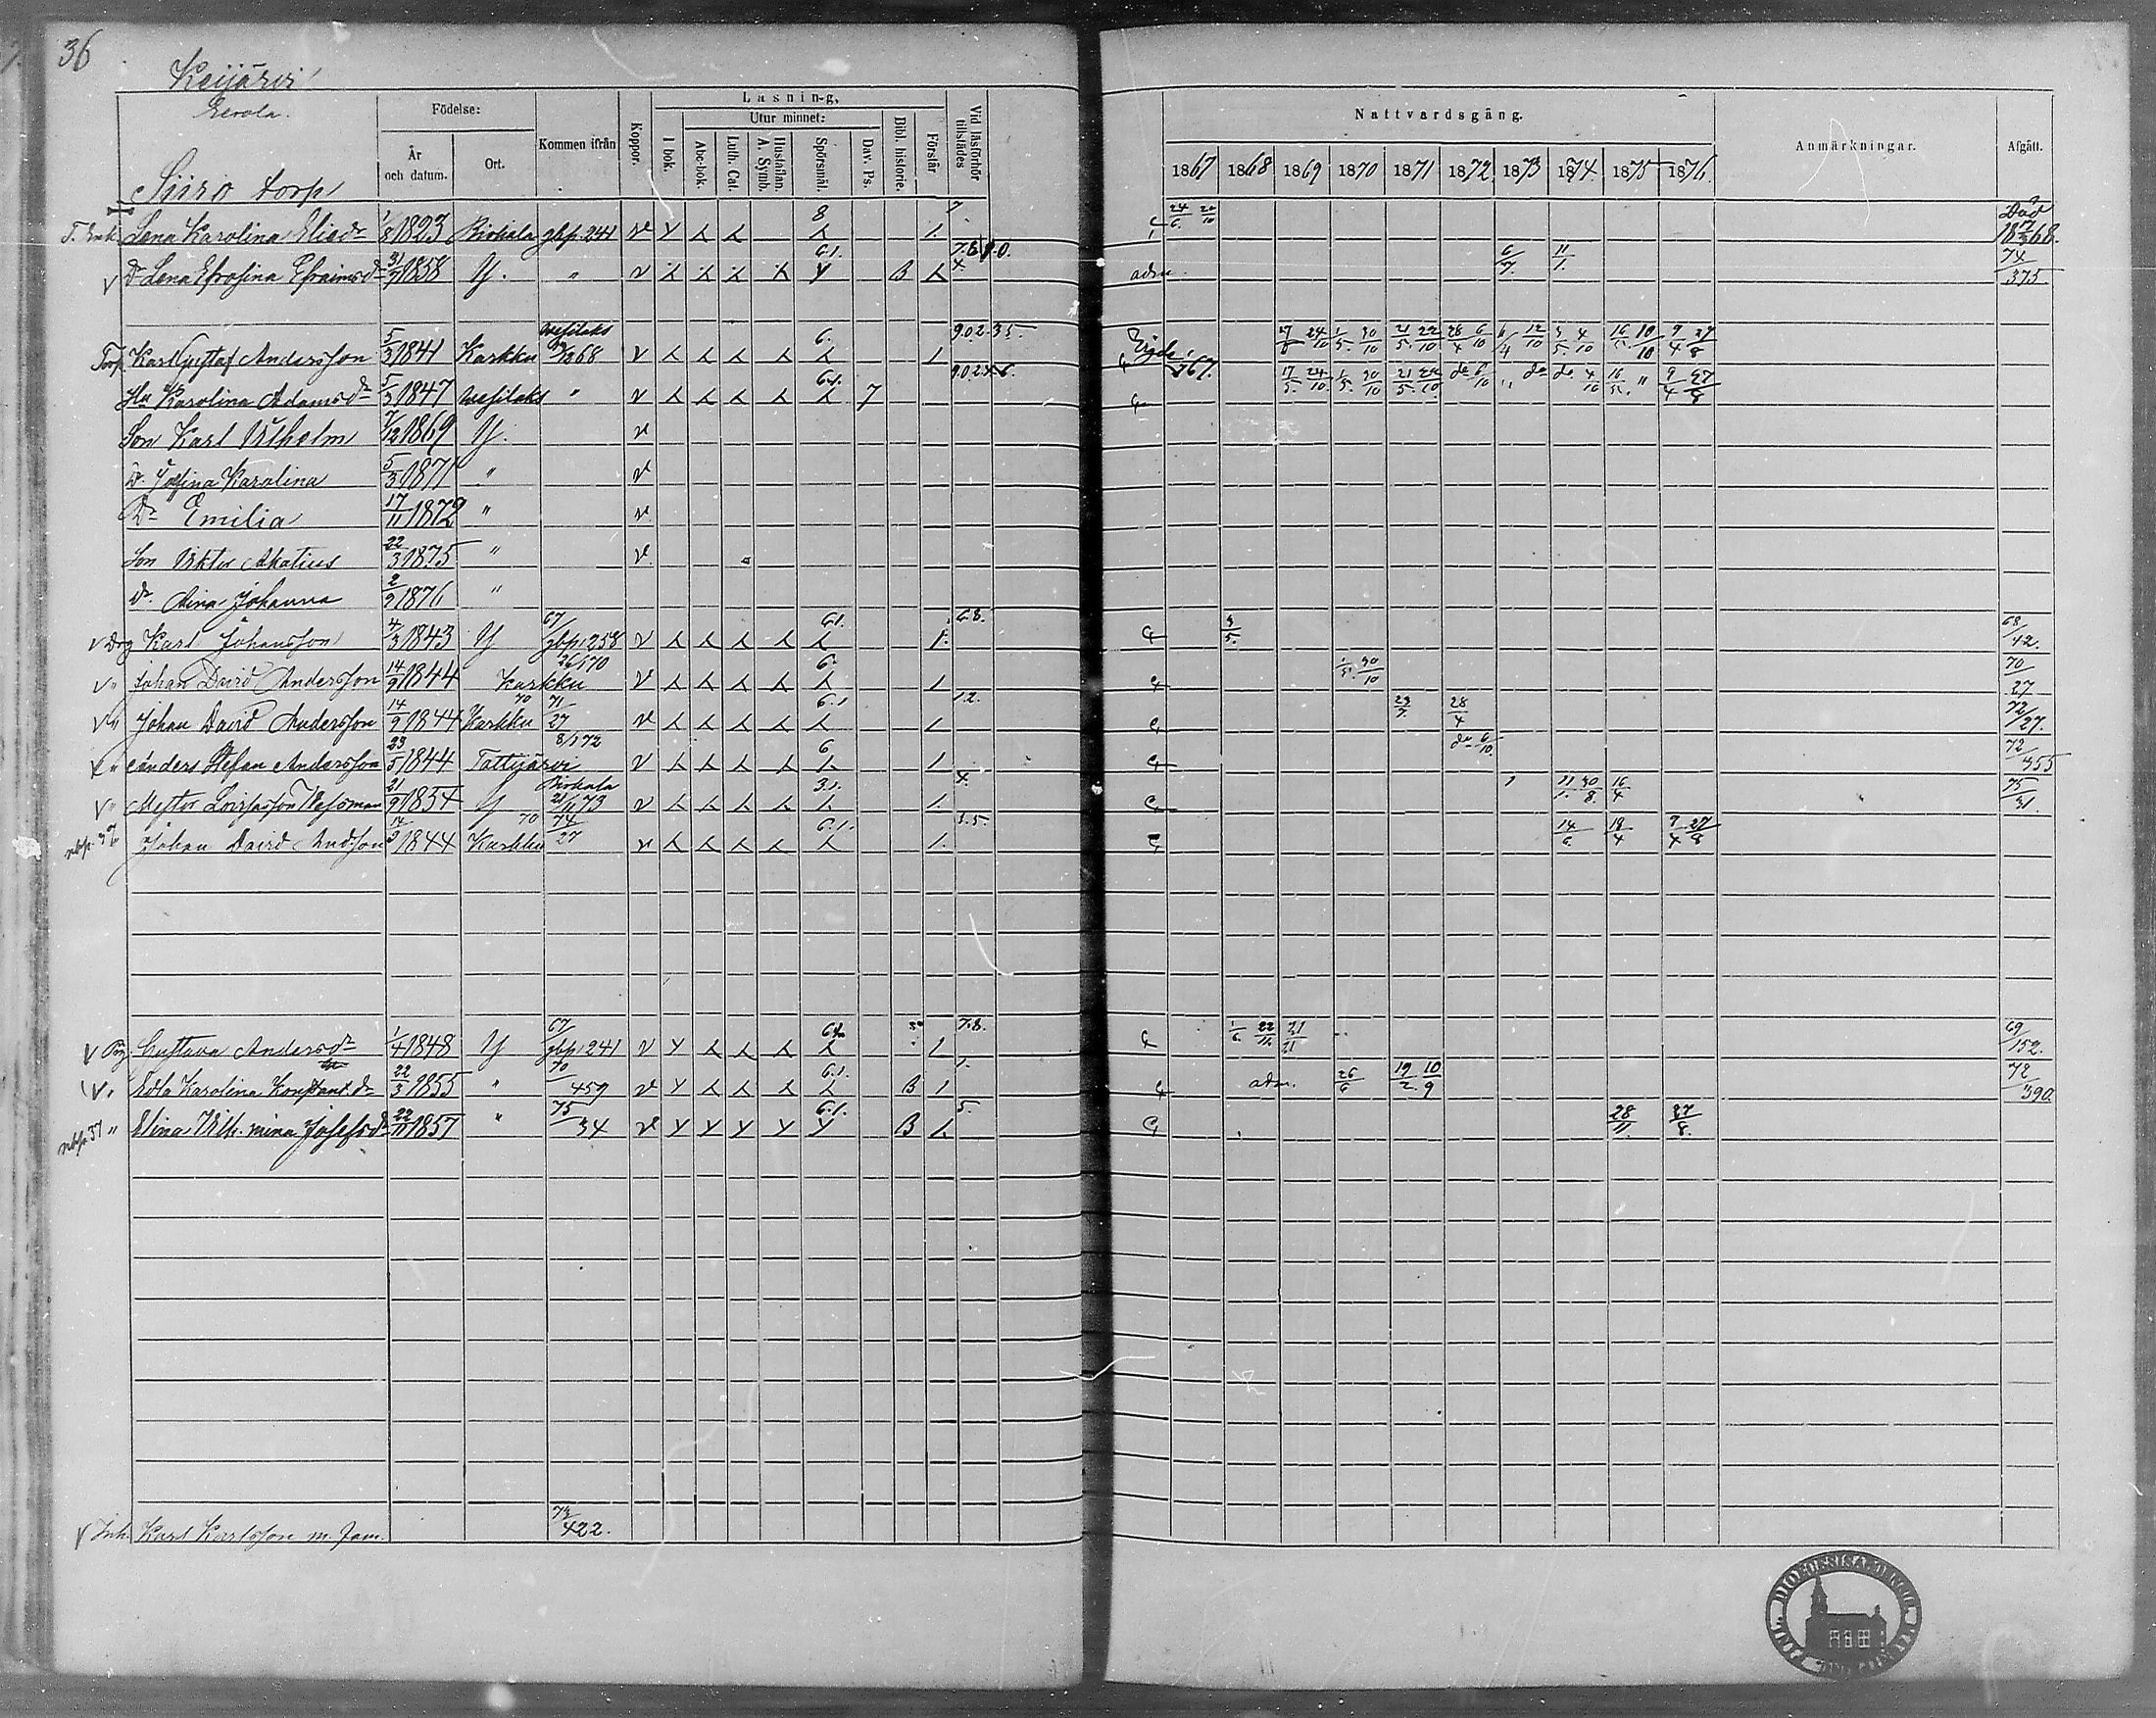 36
Keijärvi
Eerola.
Siiro torp
Födelse:
År och datum.
Ort.
Kommen ifrån
Koppor.
Läsning,
I bok.
Utur minnet:
Abc-bok.
Luth. Cat.
Hustaflan. A. Symb.
Spörsmål.
Dav. Ps.
Bibl. historie.
Förstår
Vid läsförhör tillstädes
Nattvardsgång.
1867 1868 1869 1870 1871 1872 1873 1874 1875 1876
Anmärkningar.
Afgått.
T. Enk. Lena Karolina Eliedr 1/8 1823 Birkala gbp. 241 v 8 1. 7 24/6. Död 1868.
v Dr Lena Efrosina Efraimsdr 31/7 1858 Y. " v 6.1. B adm. 6/7. 11/1. 74/375
Torp. Karl Gustaf Andersson 5/3 1841 Karkku Wesilaks 68 v 6. 1 9.0.2.3.5. 27/6 24/10 1/5. 30/10 21/5. 22/10 28/4 6/10 12/10 3/5. 4/10 16/ 10/10 9/4 27/8
Hu Karolina Adamsdr 5/3 1847 Wesilaks " v 6.1. 7 17/5. 24/10. 1/5. 30/10 21/5. 22/10. do 6/10 " do do 4/10 16/5. " 9/4 27/8
Son Karl Vilhelm 7/12 1869 Y. v
Dr. Josina Karolina 5/3 1871 " v
Dr Emilia 17/11 1872 " v
Son Viktor Akatius 22/3 1875 " v
Dr. Aina Johanna 2/9 1876 "
v Drg Karl Johansson 4/3 1843 Y 67/gbp. 258 v 6.1. 1. 6.8. 3/5. 68/42.
v " Johan David Andersson 14/9 1844 Karkku 26/1 70 v 6. 1 1/5. 30/10 70/27
v " Johan David Andersson 14/9 1844 Karkku 70 71/27 v 6.1 1 1.2. 23/7. 28/4 72/27.
v " Anders Stefan Andersson 23/5 1844 Tottijärvi 8/1 72 v 6 1 do 6/10. 72/355
v " Mester Loviisasson Wessman 21/9 1854 Y Birkala 21/11 73 v 3.1. 1. 4. 11/1. 30/8. 16/4 75/31.
nbp. 37 Johan David Andsson 14/9 1844 Karkku 70 74/27 v 6.1. 1. 3.5. 14/6. 18/4 9/4 27/8
v Pig. Gustava Andersdr 1/4 1848 Y 67/gbp. 241 v 1 7.8. 1/6. 22/11. 21/11 69/152.
v " Edla Karolina Konstant.dr 22/3 1855 " 70/459 v 6.1. B 1 1. adm. 26/6 19/2. 10/9 72/390.
nbp. 37 " Elina Vilh.mina Josefsdr 22/11 1857 " 75/34 v 6.1. B 1. 5. 28/11. 27/8.
v Inh. Karl Karlsson m. fam. 74/422.